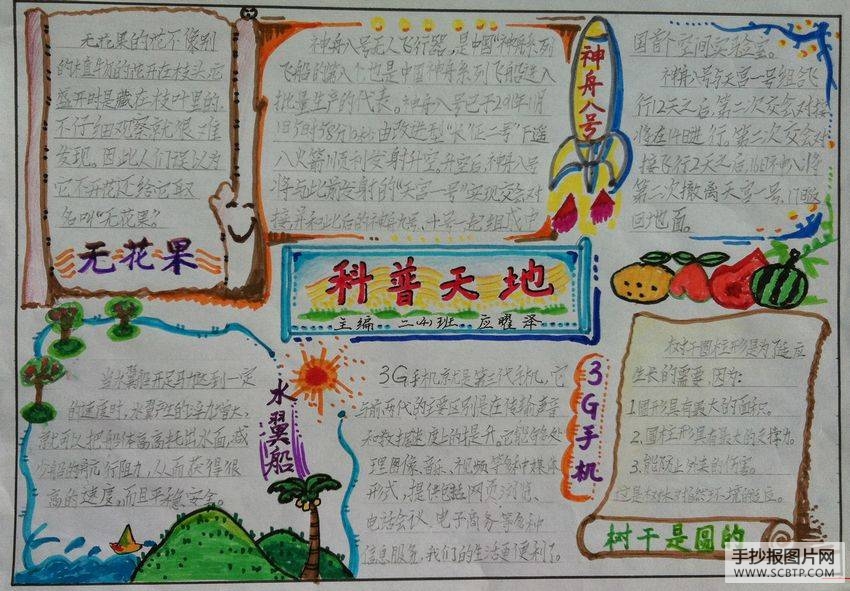 无花果的花不像别
的植物的花开在枝头,它
盛开时是藏在枝叶里的,
不仔细观察就很难
发现。因此人们误认为
它不开花还给它取
名叫“无花果”。
无花果
神舟八号无人飞行器,是中国“神舟”系列
飞船的第八个,也是中国神舟系列飞船进入
批量生产的代表。神舟八号已于2011年11月
1日5时58分10秒由改进型“火箭二号”F遥
八火箭顺利发射升空。升空后,神舟八号
将与此前发射的“天宫一号”实现交会对
接,并和此后的神舟九号、十号一起组成中
神舟八号
国首个空间实验室。
神舟八号与天宫一号组合飞
行12天之后,第二次交会对接
将在14日进行。第二次交会对
接飞行2天之后,16日神八将
第二次撤离天宫一号,17日返
回地面。
科普天地
主编 二(4)班 应曜泽
当水翼船开足马力达到一定
的速度时,水翼产生的浮力增大,
就可以把船体高高托出水面,减
少船的航行阻力,从而获得很
高的速度,而且平稳安全。
水翼船
3G手机就是第三代手机,它
与前两代的主要区别是在传输声音
和数据速度上的提升。它能够处
理图像、音乐、视频等多种媒体
形式,提供包括网页浏览、
电话会议、电子商务等多种
信息服务,我们的生活更便利了。
3G手机
树干圆柱形是为了适应
生长的需要,因为:
1.圆形具有最大的面积。
2.圆柱形具有最大的支撑力。
3.能防止外来的伤害。
这是树木对自然环境的适应。
树干是圆的
手抄报图片网
WWW.SCBTP.COM